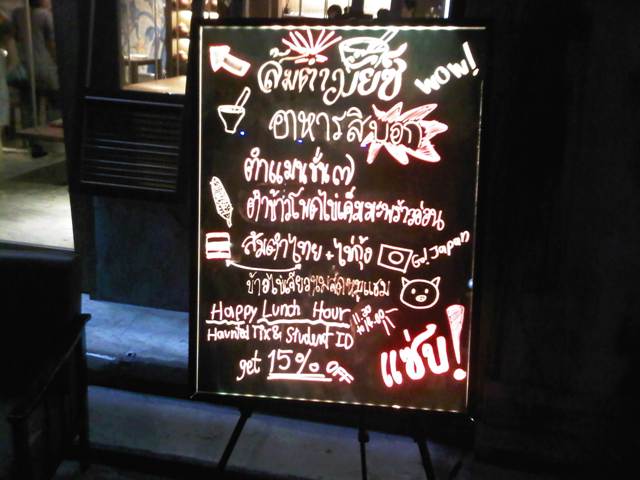 ส้มตำวมัยซ์ WOW!
อาหารสิบอก
ตำแมนชั่น ๗
ตำข้าวโพดไข่เค็มมะพร้าวอ่อน
ส้มตำไทย + ไข่กุ้ง Go! Japan
ข้าวไข่เจียวนมสดหมูแฮม
Happy Lunch Hour 11.30
Haunted Tix & Student ID
get 15% OFF
แซ่บ!